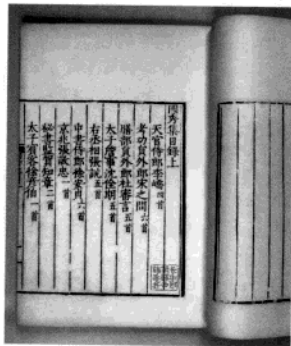 國秀集目錄上
天官侍郎李嶠四首
考功員外郎宋之問六首
膳部員外郎杜審言五首
太子詹事沈佺期五首
右丞相張說五首
中書侍郎徐安貞六首
京兆張敬忠一首
秘書監賀知章二首
太子賓客徐彥伯一首